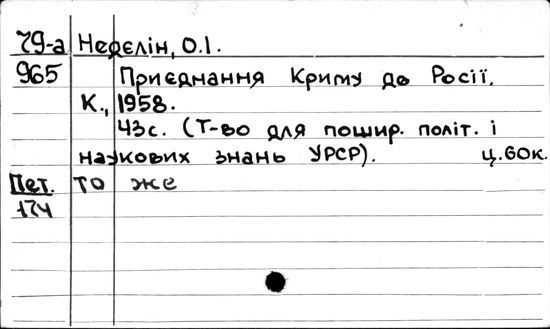 79-а Недєлін, О.І.
965 Приєднання Криму до Росії.
К., 1958.
43с. (Т-во для пошир. політ. і
наукових знань УРСР). ц.60к.
Пет. то же
174